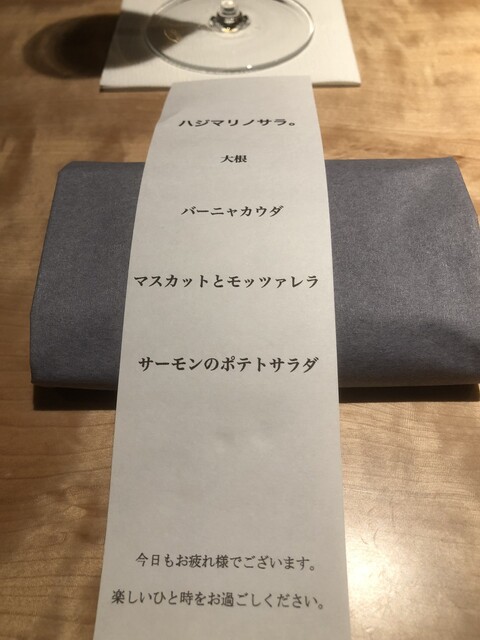 ハジマリノサラ。
大根
バーニャカウダ
マスカットとモッツァレラ
サーモンのポテトサラダ
今日もお疲れ様でございます。
楽しいひと時をお過ごしください。